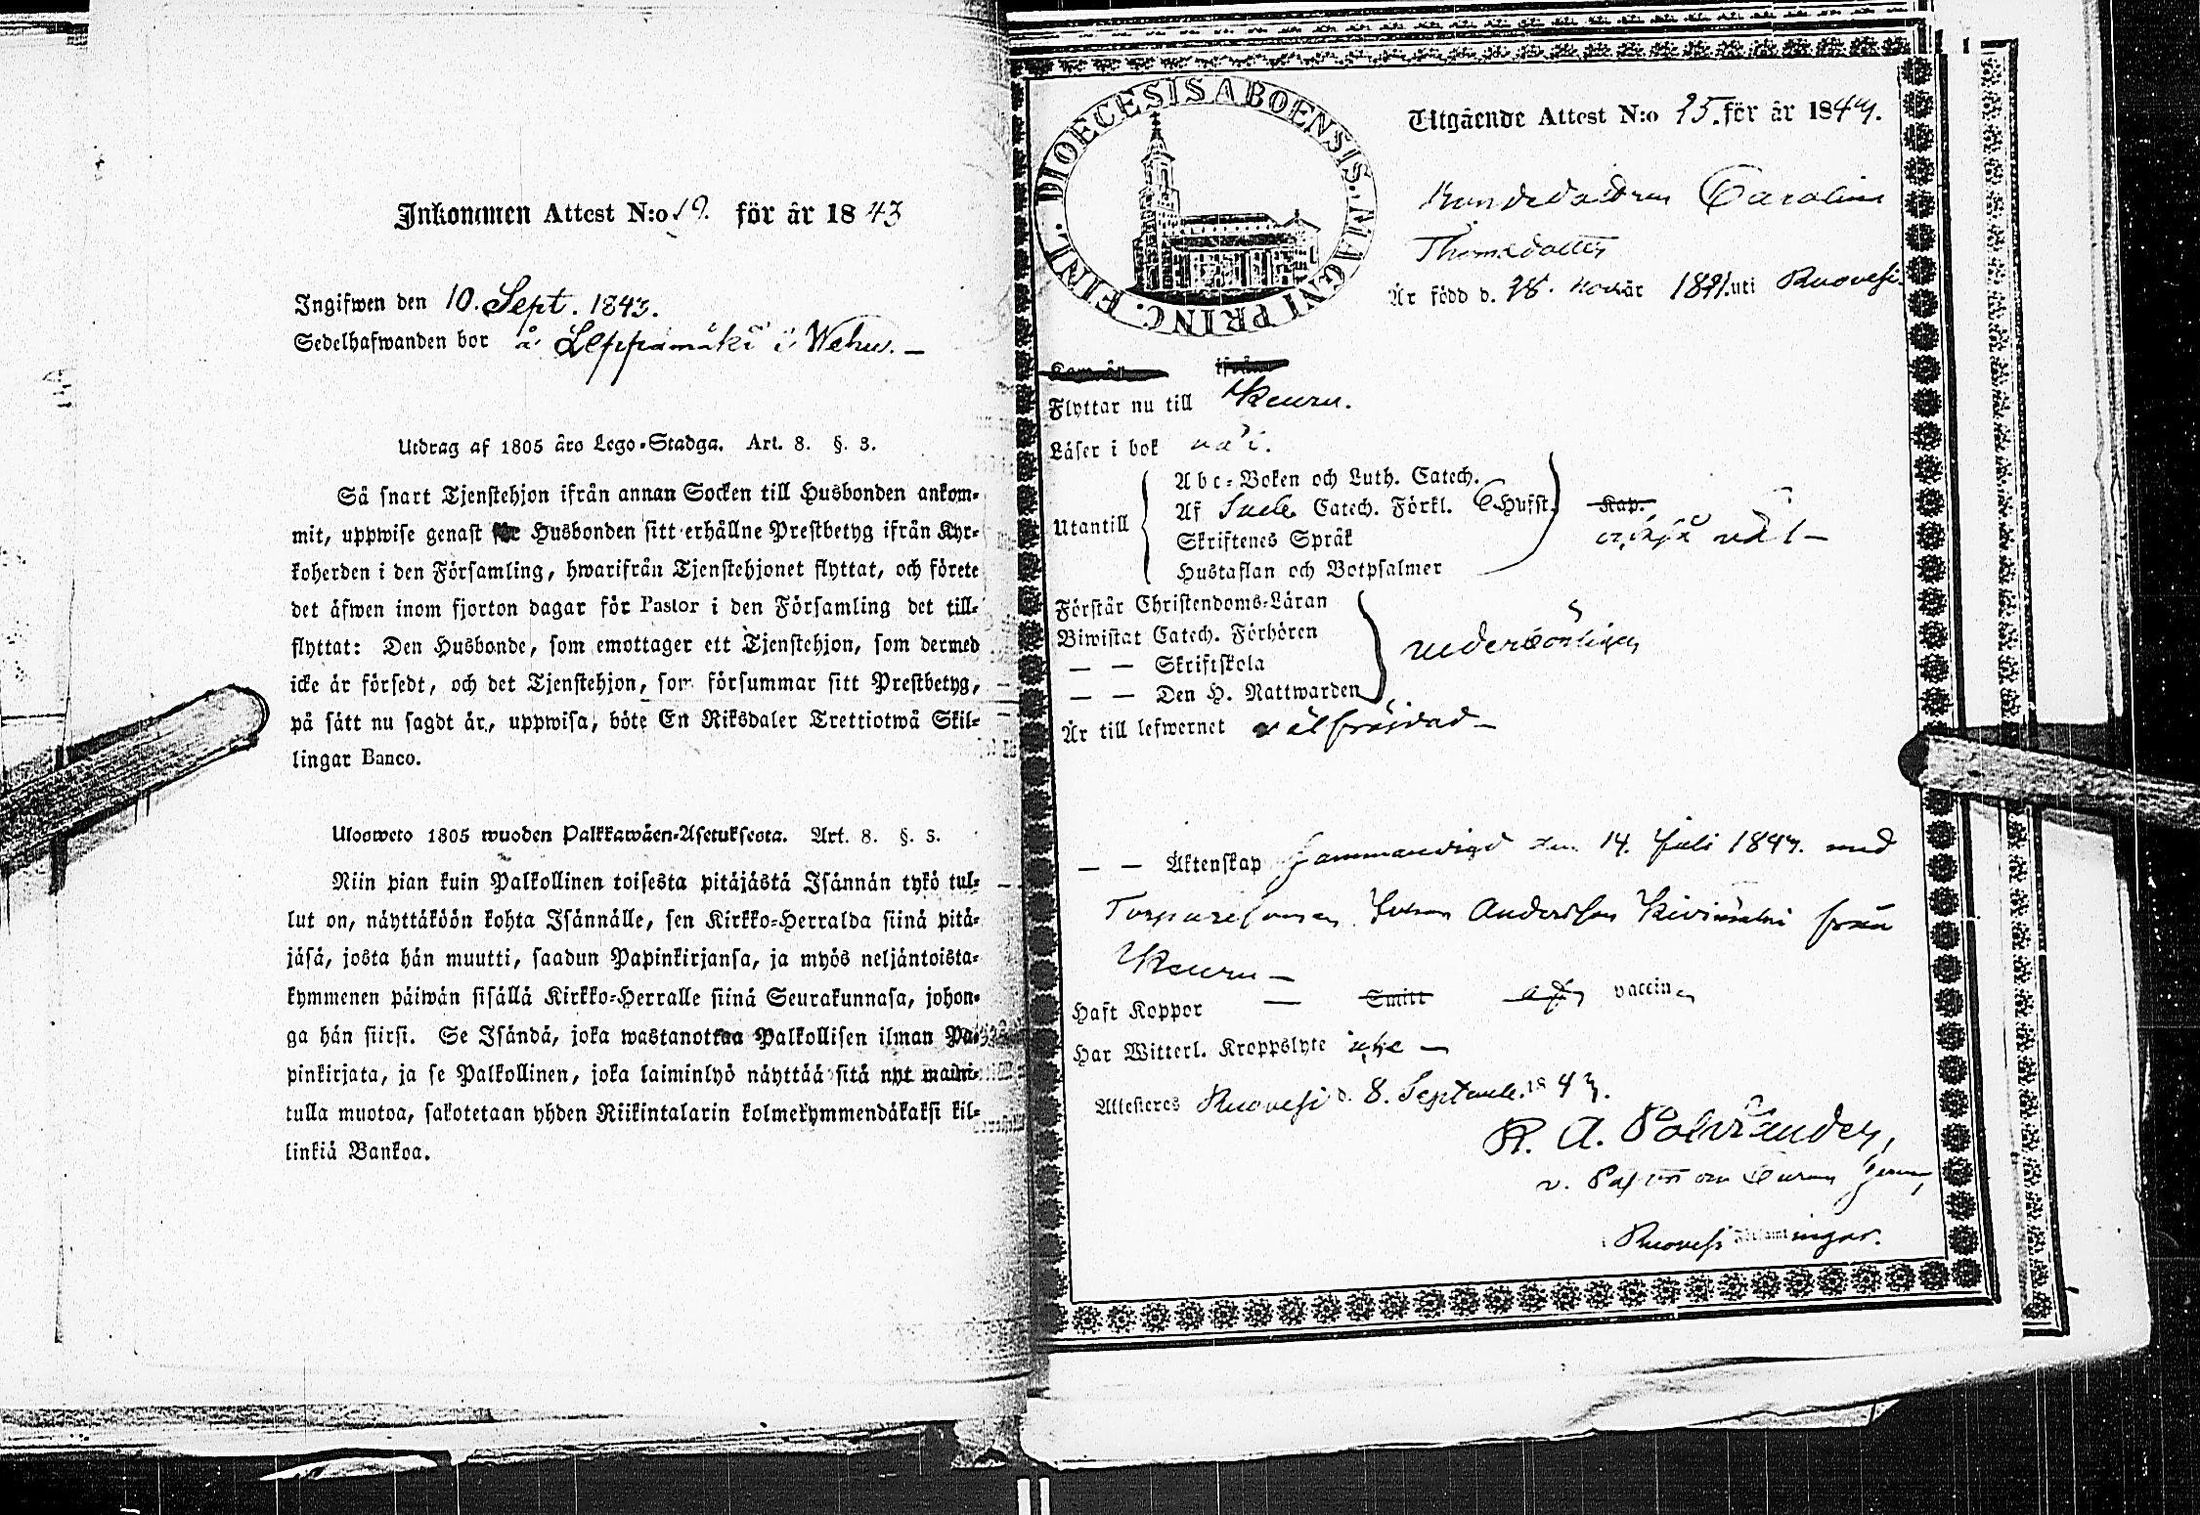 Inkommen Attest N:o 19. för år 1843
Ingifwen den 10. Sept. 1843.
Sedelhafwanden bor å Leppämäki i Wehu. —
Utdrag af 1805 åro Lego-Stadga. Art. 8. §. 3.
Så snart Tjenstehjon ifrån annan Socken till Husbonden ankom-
mit, uppwise genast för Husbonden sitt erhållne Prestbetyg ifrån Kyr-
koherden i den Församling, hwarifrån Tjenstehjonet flyttat, och förete
det äfwen inom fjorton dagar för Pastor i den Församling det till-
flyttat: Den Husbonde, som emottager ett Tjenstehjon, som dermed
icke är försedt, och det Tjenstehjon, som försummar sitt Prestbetyg,
på sätt nu sagdt är, uppwisa, böte En Riksdaler Trettiotwå Skil-
lingar Banco.
Ulosweto 1805 wuoden Palkkawäen-Asetuksesta. Art. 8. §. 3.
Niin pian kuin Palkollinen toisesta pitäjästä Isännän tykö tul-
lut on, näyttäköön kohta Isännälle, sen Kirkko-Herralda siinä pitä-
jäsä, josta hän muutti, saadun Papinkirjansa, ja myös neljäntoista-
kymmenen päiwän sisällä Kirkko-Herralle siinä Seurakunnasa, johon-
ga hän siirsi. Se Isändä, joka wastanottaa Palkollisen ilman Pa-
pinkirjata, ja se Palkollinen, joka laiminlyö näyttää sitä nyt maini-
tulla muotoa, sakotetaan yhden Riikintalarin kolmekymmendäkaksi kil-
linkiä Bankoa.
DIOECESIS ABOENSIS. MAGNI PRINC. FINL.
Utgående Attest N:o 25. för år 1843.
Bondedottren Carolina
Thomasdotter
Är född d. 28. Nov. år 1821. uti Ruovesi.
Flyttar nu till Keuru.
Läser i bok väl.
Utantill
Abc-Boken och Luth. Catech.
Af Catech. Förkl. Husft.
Skriftenes Språk
Hustaflan och Botpsalmer
också väl —
Förstår Christendoms-Läran
Biwistat Catech. Förhören
— — Skriftskola
— — Den H. Nattwarden
wederbörligen
Är till lefwernet välfrejdad —
— — Äktenskap Sammanvigd den 14. Juli 1843. med
Torparesonen Johan Andersson Kivimäki från
Keuru —
Haft Koppor — Smitt vaccin
Har Witterl. Kroppslyte icke —
Attesteras Ruovesi d. 8. September 1843.
v. Pastor
Ruovesi Församlingar.